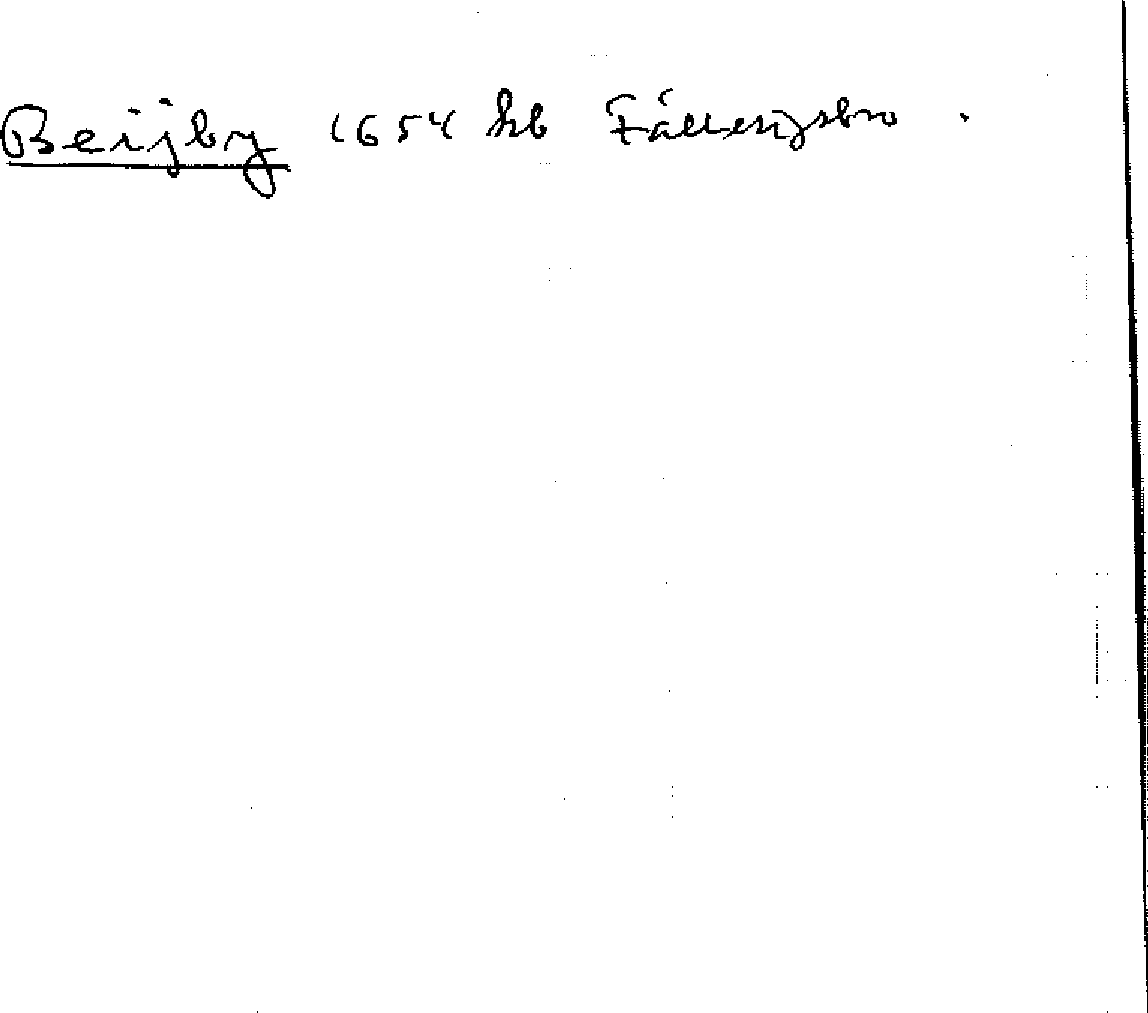 Beijby 1654 kb Fällingsbro.